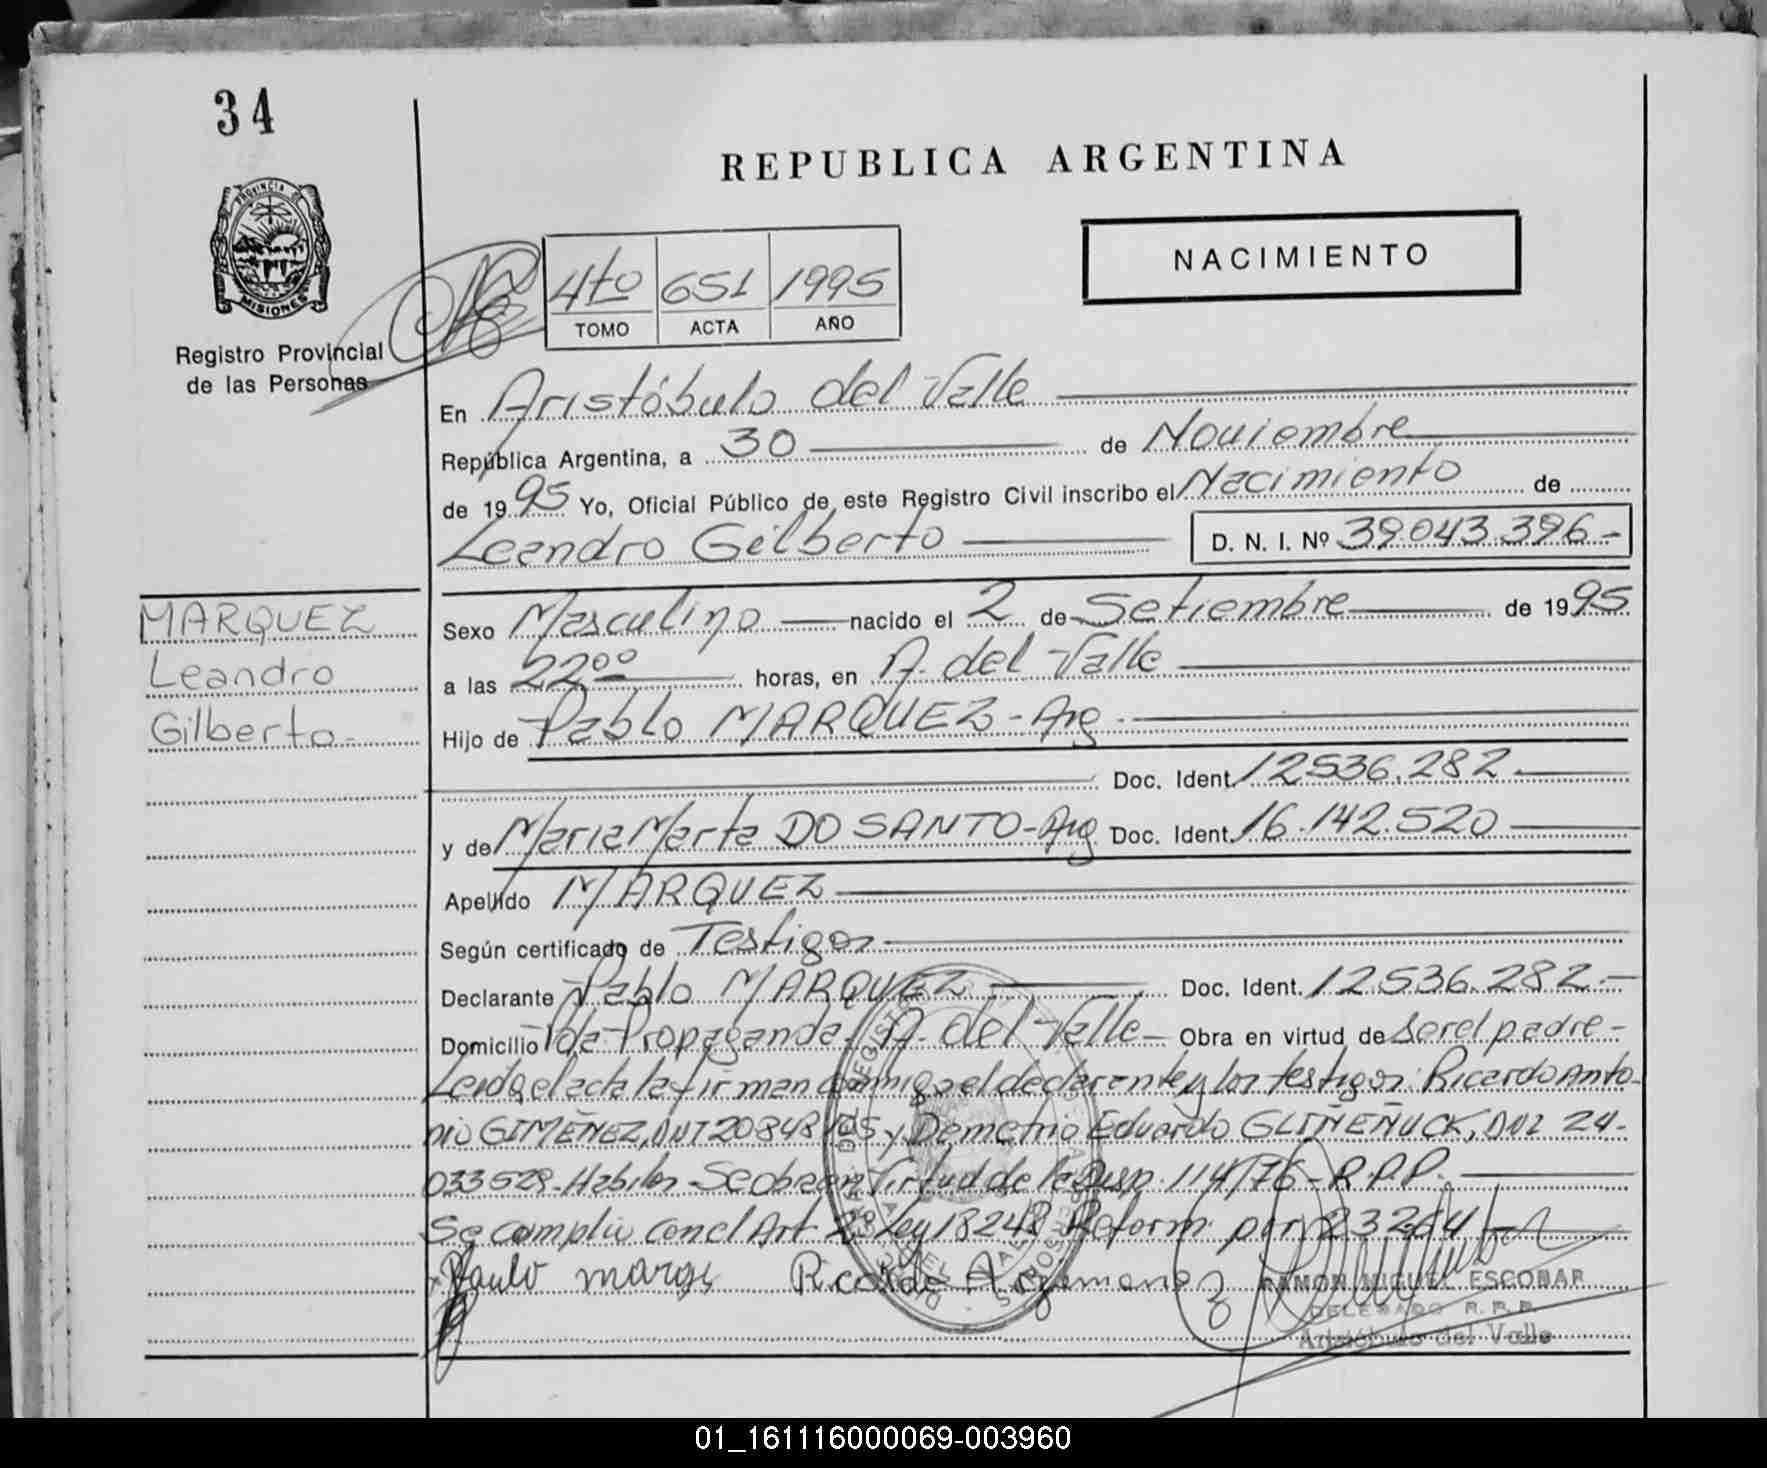 34
REPUBLICA ARGENTINA
PROVINCIA DE
MISIONES
Registro Provincial
de las Personas
4to 651 1995
TOMO ACTA AÑO
NACIMIENTO
En Aristóbulo del Valle
República Argentina, a 30 de Noviembre
de 1995 Yo, Oficial Público de este Registro Civil inscribo el Nacimiento de
Leandro Gilberto D. N. I. Nº 39.043.396.-
MARQUEZ
Leandro
Gilberto.-
Sexo Masculino nacido el 2 de Setiembre de 1995
a las 22 00 horas, en A. del Valle
Hijo de Pablo MARQUEZ - Arg.
Doc. Ident. 12.536.282
y de Maria Marta DO SANTO - Arg. Doc. Ident. 16.142.520
Apellido MARQUEZ
Según certificado de Testigos
Declarante Pablo MARQUEZ Doc. Ident. 12.536.282.-
Domicilio Pda. Propaganda. A. del Valle - Obra en virtud de ser el padre -
Leida el acta la firman conmigo el declarante y los testigos: Ricardo Anto-
nio GIMENEZ, DNI 20848 y Demetrio Eduardo GLIÑEÑUCK, DNI 24-
033529. Habiles - Se obra en Virtud de la Disp. 114/76 - R.P.P.
Se cumplio con el Art 2º Ley 18248 Reform. por 23264
Ricardo A. Gimenez
RAMON MIGUEL ESCOBAR
DELEGADO R. P. P.
Aristóbulo del Valle
01_161116000069-003960